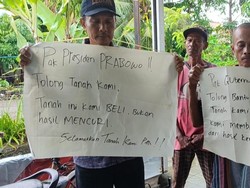 Pak Presiden PRABOWO !!
Tolong Tanah Kami,
Tanah ini Kami BELI, Bukan
hasil MENCURI.
Selamatkan Tanah Kami Pak !!!
Pak Gubernur
Tolong Bantu
Tanah Kami
Kami Memb
dan hasil